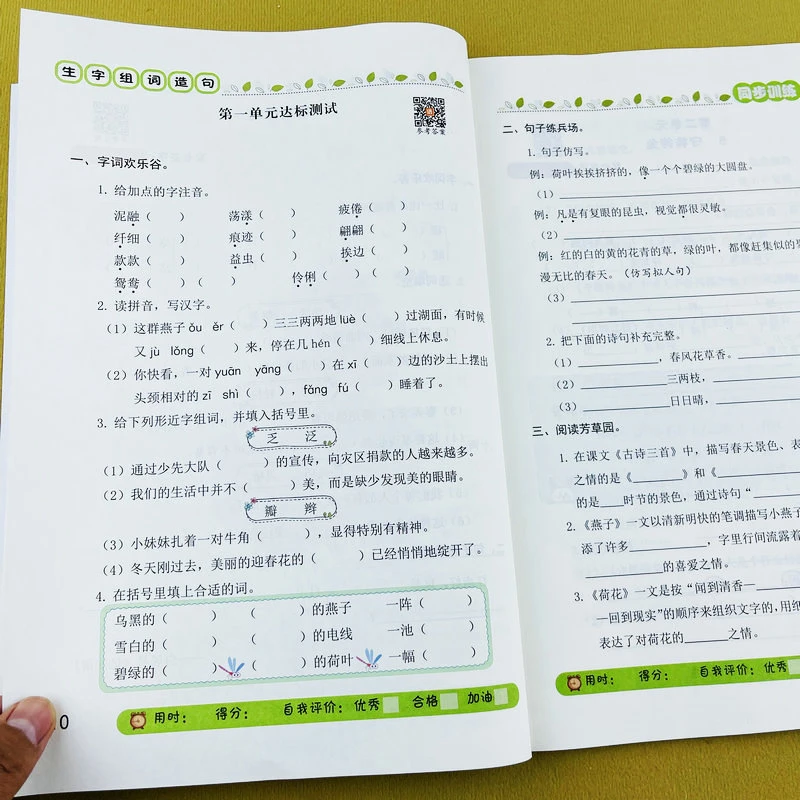 生字组词造句
第一单元达标测试
参考答案
一、字词欢乐谷。
1. 给加点的字注音。
泥融（ ） 荡漾（ ） 疲倦（ ）
纤细（ ） 痕迹（ ） 翩翩（ ）
款款（ ） 益虫（ ） 挨边（ ）
鸳鸯（ ）（ ） 伶俐（ ）（ ）
2. 读拼音，写汉字。
（1）这群燕子ǒu ěr（ ）三三两两地lüè（ ）过湖面，有时候
又jù lǒng（ ）来，停在几hén（ ）细线上休息。
（2）你快看，一对yuān yāng（ ）在xī（ ）边的沙土上摆出
头颈相对的zī shì（ ），fǎng fú（ ）睡着了。
3. 给下列形近字组词，并填入括号里。
乏 泛
（1）通过少先大队（ ）的宣传，向灾区捐款的人越来越多。
（2）我们的生活中并不（ ）美，而是缺少发现美的眼睛。
瓣 辫
（3）小妹妹扎着一对牛角（ ），显得特别有精神。
（4）冬天刚过去，美丽的迎春花的（ ）已经悄悄地绽开了。
4. 在括号里填上合适的词。
乌黑的（ ） （ ）的燕子 一阵（ ）
雪白的（ ） （ ）的电线 一池（ ）
碧绿的（ ） （ ）的荷叶 一幅（ ）
用时： 得分： 自我评价：优秀 合格 加油
0
同步训练
二、句子练兵场。
1. 句子仿写。
例：荷叶挨挨挤挤的，像一个个碧绿的大圆盘。
（1）
例：凡是有复眼的昆虫，视觉都很灵敏。
（2）
例：红的白的黄的花青的草，绿的叶，都像赶集似的
漫无比的春天。（仿写拟人句）
（3）
2. 把下面的诗句补充完整。
（1）________，春风花草香。________
（2）________三两枝，________
（3）________日日晴，________
三、阅读芳草园。
1. 在课文《古诗三首》中，描写春天景色、表
之情的是《________》和《________
的是____时节的景色，通过诗句“________
2.《燕子》一文以清新明快的笔调描写小燕子
添了许多________，字里行间流露着
________的喜爱之情。
3.《荷花》一文是按“闻到清香—________
—回到现实”的顺序来组织文字的，用
表达了对荷花的____之情。
用时： 得分： 自我评价：优秀